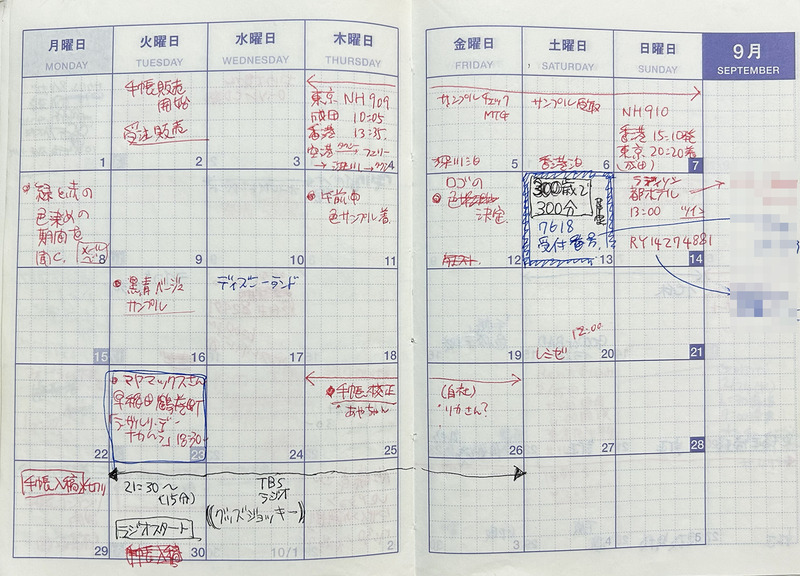 月曜日
MONDAY
火曜日
TUESDAY
水曜日
WEDNESDAY
木曜日
THURSDAY
金曜日
FRIDAY
土曜日
SATURDAY
日曜日
SUNDAY
9月
SEPTEMBER
1
手帳販売
開始
受注販売
2
3
東京 NH909
成田 10:05
香港 13:35
空港 フェリー
4
サンプルチェック
MTG
深川泊
5
サンプル受取
香港泊
6
NH910
香港 15:10発
東京 20:20着
(成田)
7
緑と赤の
色染めの
期間を
聞く。
8
9
10
午前中
色サンプル着
11
ロゴの
決定
12
300歳で
300分
7618
受付番号
13
都ホテル
13:00 ツイン
RY14274881
14
15
黒青ベージュ
サンプル
16
ディズニーランド
17
18
19
12:00
レミゼ
20
21
22
マヤマックスさん
早稲田鶴巻町
18:30
23
24
手帳校正
あやちゃん
25
(自社)
りかさん?
26
27
28
手帳入稿〆切り
29
21:30〜
(15分)
ラジオスタート
手帳入稿
30
TBS
ラジオ
((グッズジョッキー))
10/1
2
3
4
5